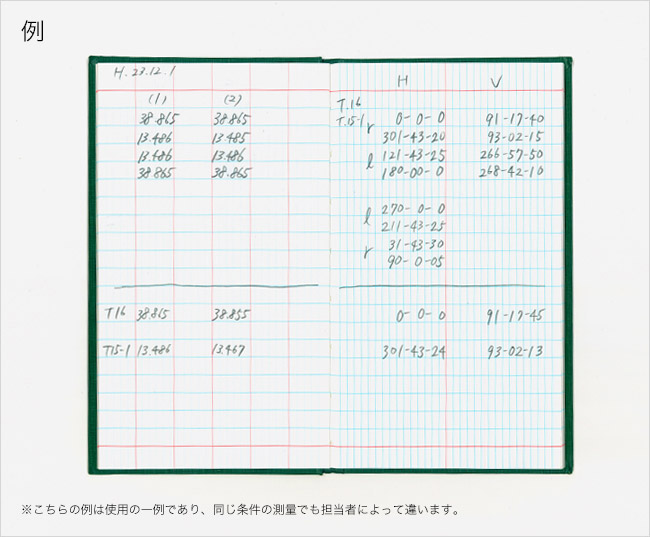 例
H. 23.12.1
(1) (2)
38.865 38.865
13.486 13.485
13.486 13.486
38.865 38.865
T16 38.865 38.855
T15-1 13.486 13.467
H V
T.16
T.15-1 r 0-0-0 91-17-40
301-43-20 93-02-15
l 121-43-25 266-57-50
180-00-0 268-42-10
l 270-0-0
211-43-25
r 31-43-30
90-0-05
0-0-0 91-17-45
301-43-24 93-02-13
※こちらの例は使用の一例であり、同じ条件の測量でも担当者によって違います。